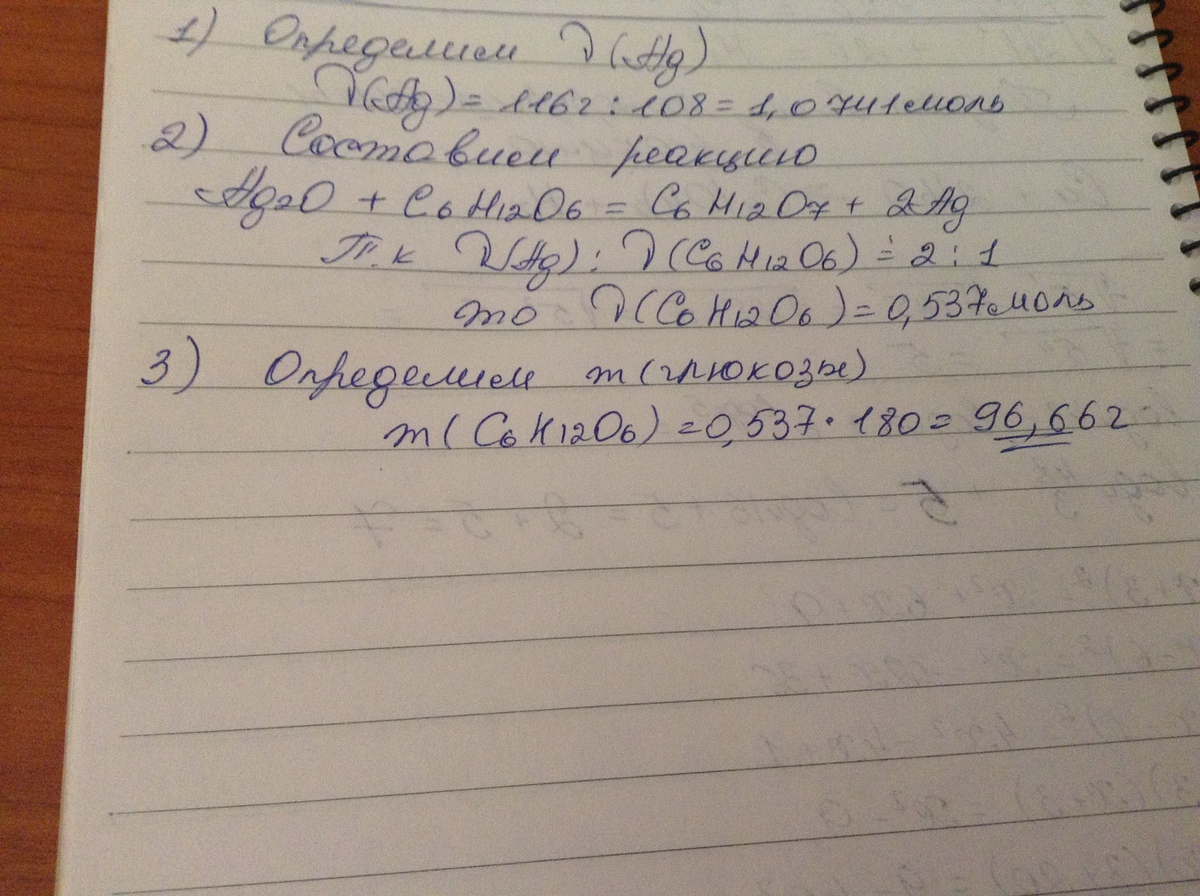 1) Определим ν(Ag)
ν(Ag) = 116г : 108 = 1,0741моль
2) Составим реакцию
Ag2O + C6H12O6 = C6H12O7 + 2Ag
Т.к ν(Ag) : ν(C6H12O6) = 2 : 1
то ν(C6H12O6) = 0,537моль
3) Определим m(глюкозы)
m(C6H12O6) = 0,537 · 180 = 96,66г